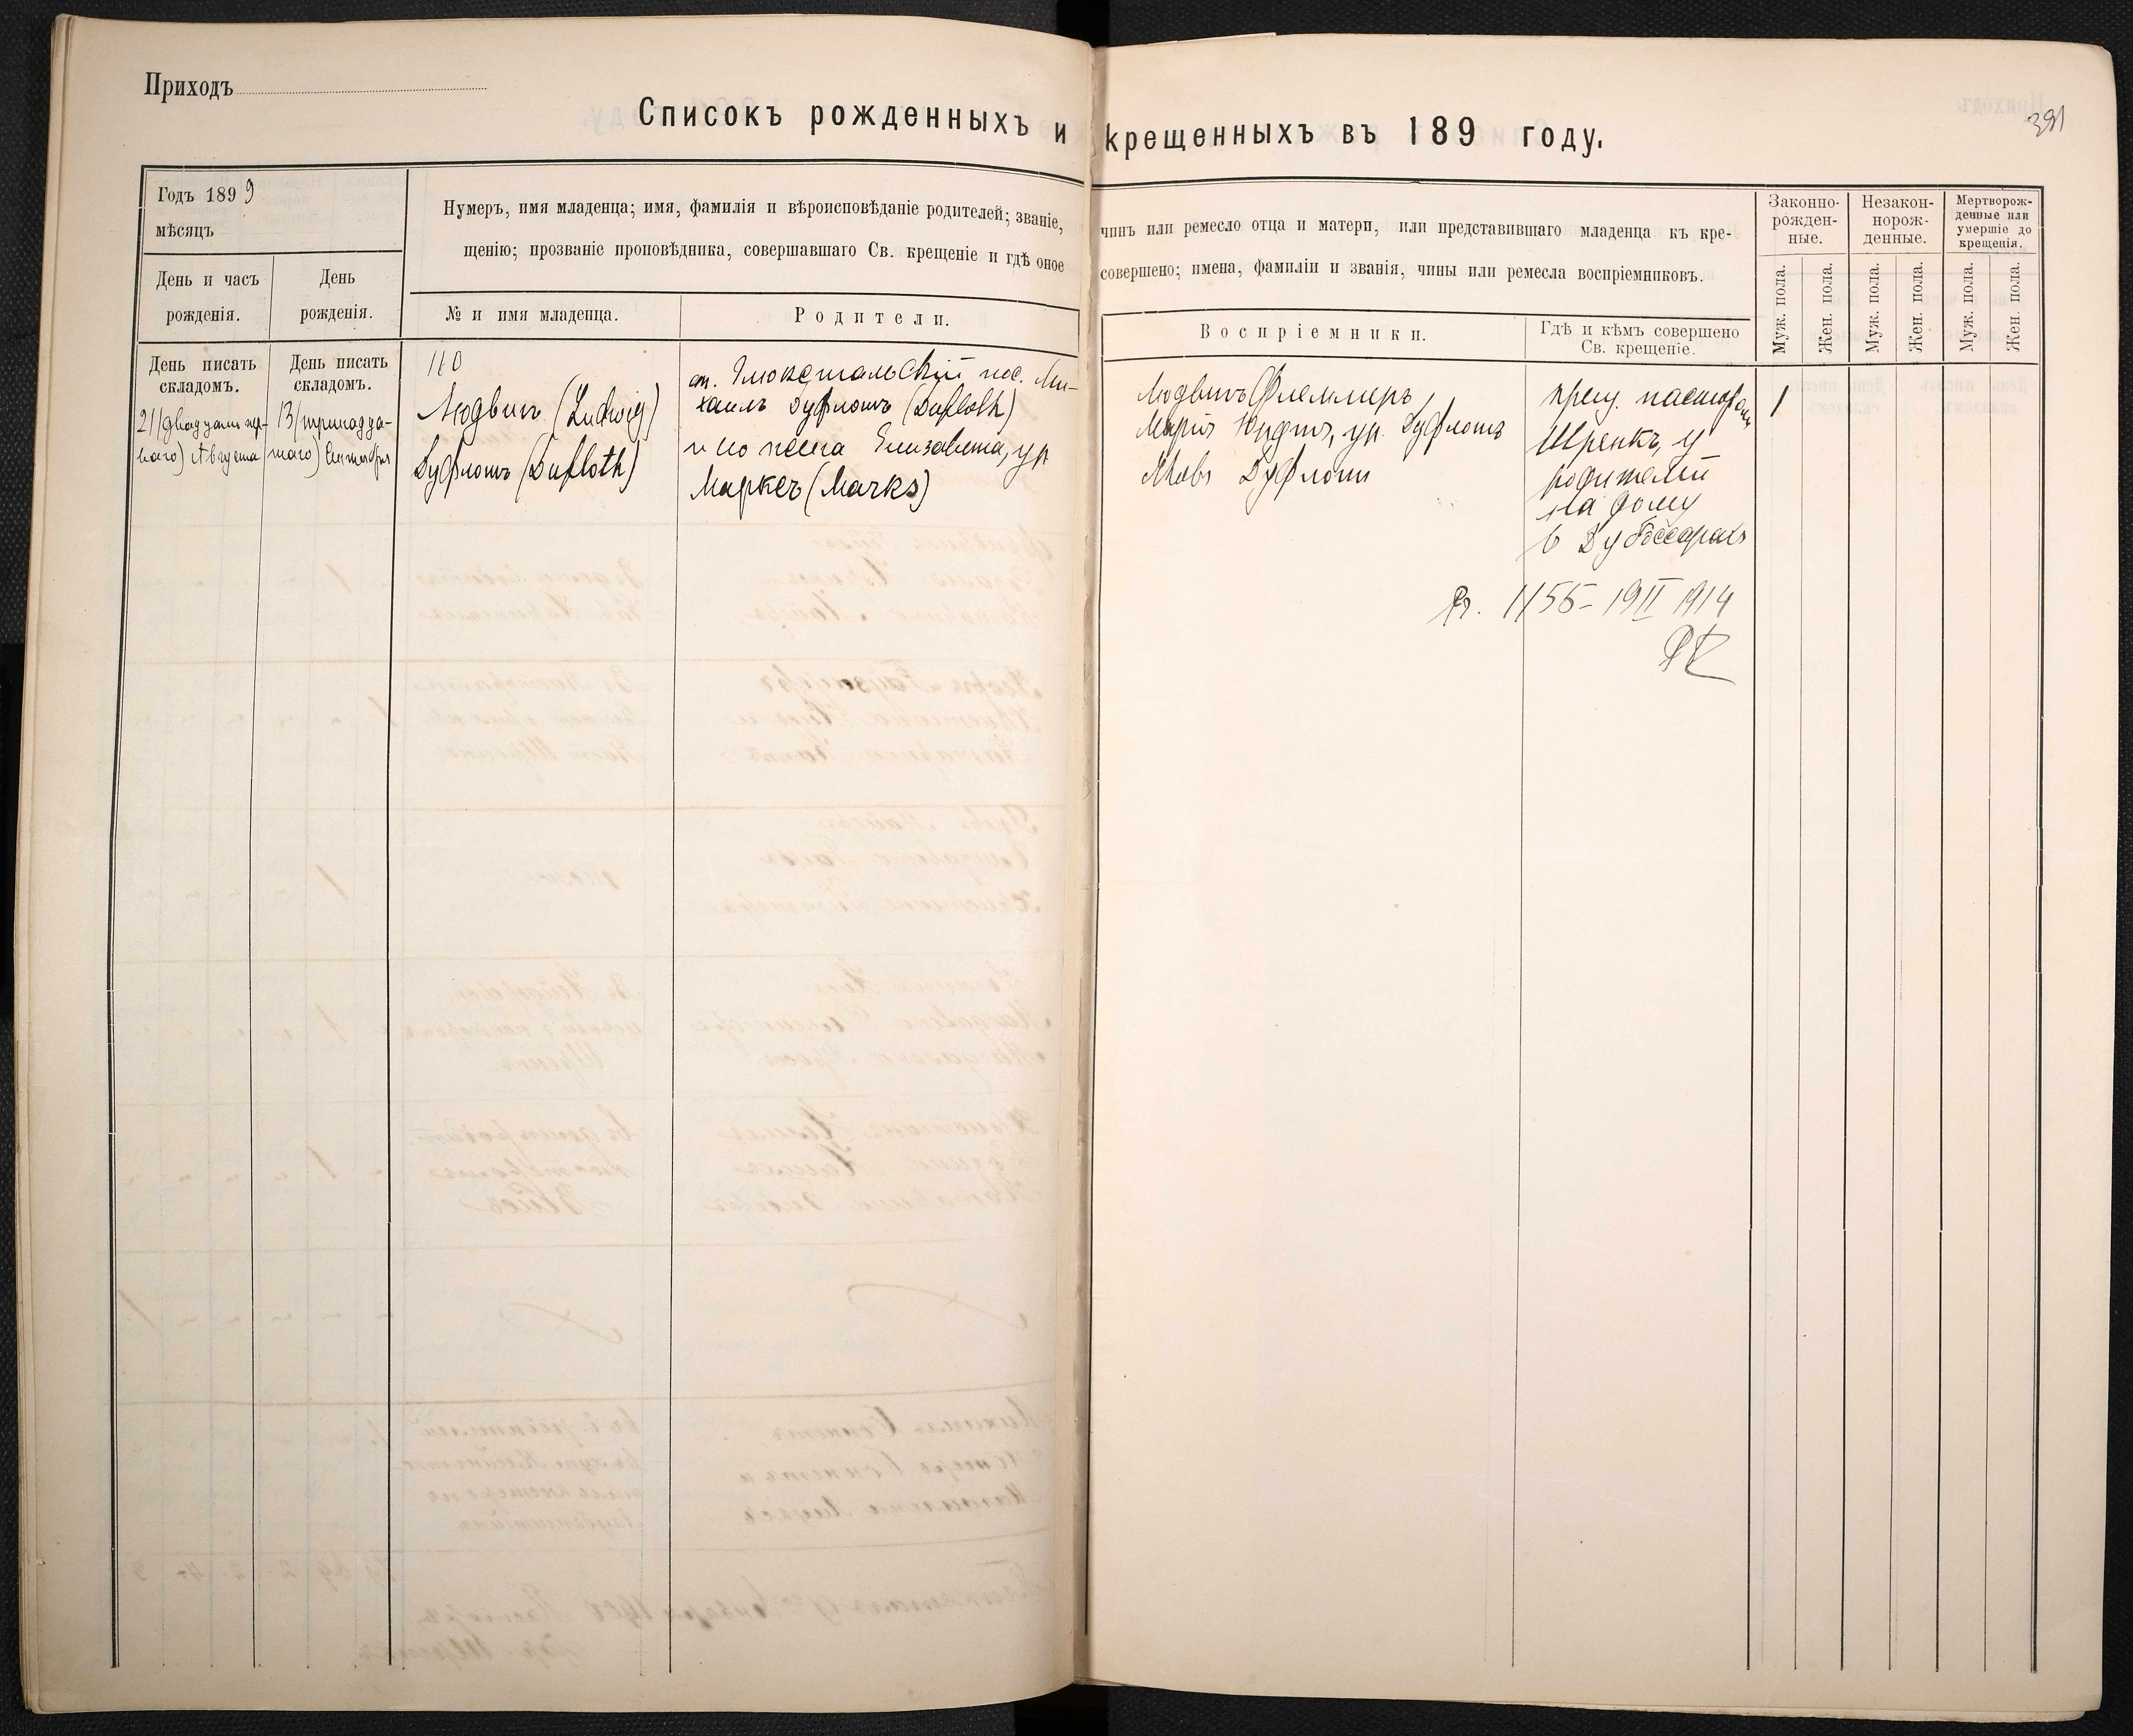 Приходъ
Списокъ рожденныхъ и крещенныхъ въ 189 году.
391
Годъ 1899
мѣсяцъ
День и часъ
рожденія.
День
рожденія.
Нумеръ, имя младенца; имя, фамилія и вѣроисповѣданіе родителей; званіе, чинъ или ремесло отца и матери, или представившаго младенца къ кре-
щенію; прозваніе проповѣдника, совершавшаго Св. крещеніе и гдѣ оное совершено; имена, фамиліи и званія, чины или ремесла воспріемниковъ.
№ и имя младенца.
Родители.
Воспріемники.
Гдѣ и кѣмъ совершено
Св. крещеніе.
Законно-
рожден-
ные.
Незакон-
норож-
денные.
Мертворож-
денные или
умершіе до
крещенія.
Муж. пола.
Жен. пола.
Муж. пола.
Жен. пола.
Муж. пола.
Жен. пола.
День писать
складомъ.
21 (двадцать пер-
ваго) Августа
День писать
складомъ.
13 (тринадца-
таго) Сентября
110
Людвигъ (Ludwig)
Дуфлотъ (Dufloth)
Глюкстальскій пос. Ми-
хаилъ Дуфлотъ (Dufloth)
и его жена Елизавета, ур
Марксъ (Marks)
Людвигъ Флеммеръ,
Марія, ур. Дуфлотъ
Яковъ Дуфлотъ
пасторомъ
Шренкъ, у
родителей
на дому
в Дубоссарахъ
1
1155 - 19 II 1914